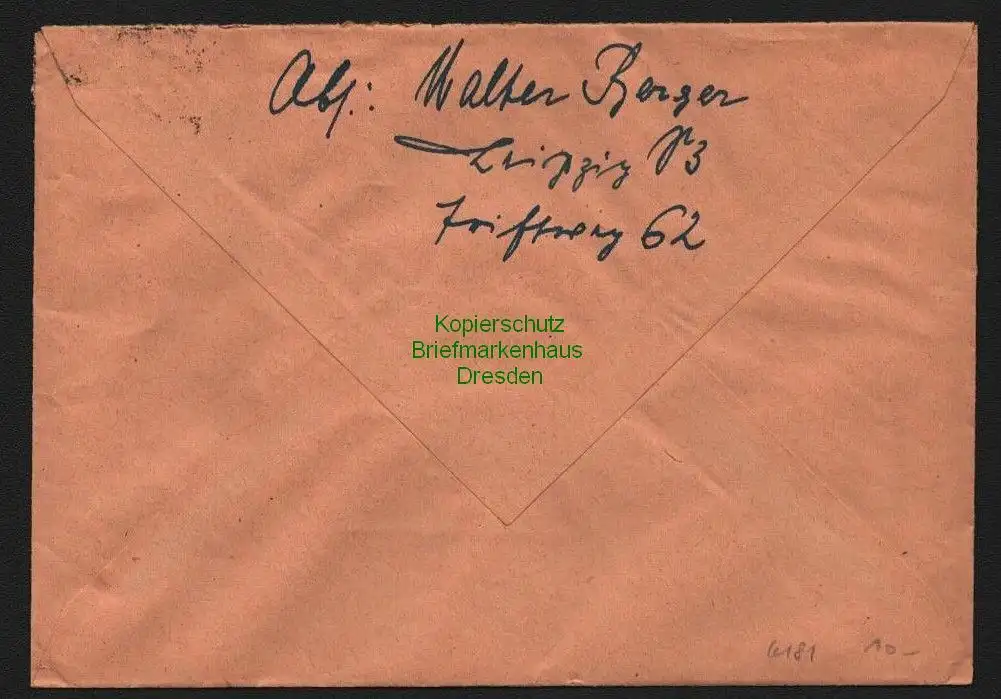 Abs.: Walter Berger
Leipzig N3
Triftweg 62
Kopierschutz
Briefmarkenhaus
Dresden
10-